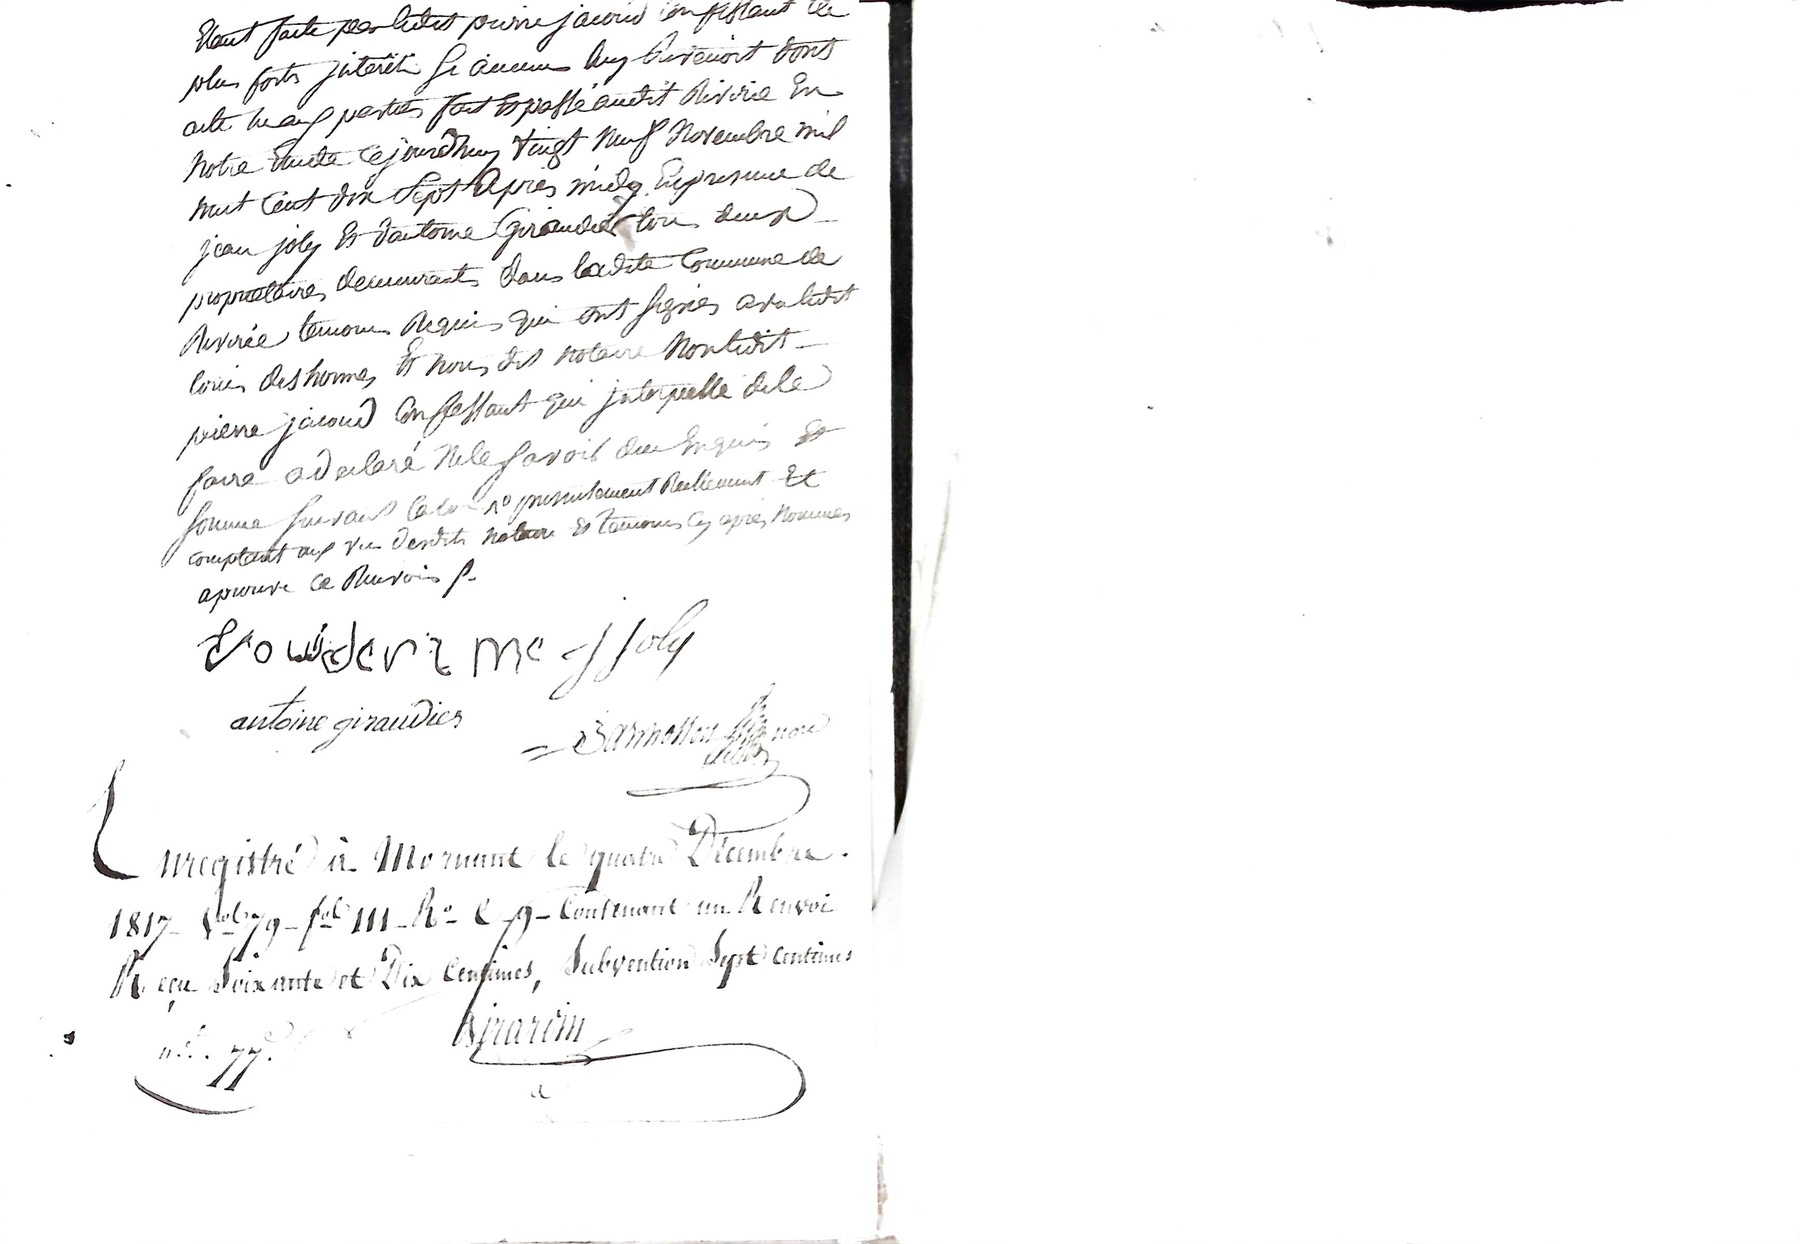 Étant faite par ledit pierre jacoud Confessant de
plus forts jnterêts Si aucun luy Revenoit dont
acte aux parties fait Et passé audit Riverie En
Notre Etude Cejourdhuy Vingt Neuf Novembre mil
huit Cent dix Sept Après midy En presence de
jean joly Et d'antoine Giraudié tous deux
proprietaires demeurants dans ladite Commune de
Riverie temoins Requis qui ont Signés avec ledit
louis deshormes Et Nous dit Notaire Non ledit
pierre jacoud Confessant qui jnterpellé de le
faire a declaré Ne le Savoir duement Enquis Et
Somme Suivant la loi 1º presentement Reellement Et
comptant aux vu desdits Notaire Et temoins Cy après Nommes
aprouvé Ce Renvois
J Joly
antoine giraudier
Enregistré à Mornant le quatre Décembre
1817 Vol 79 fol 111 Ro C 9 Contenant un Renvoi
Reçu Soixante et Dix Centimes, Subvention Sept Centimes
77
Girardin